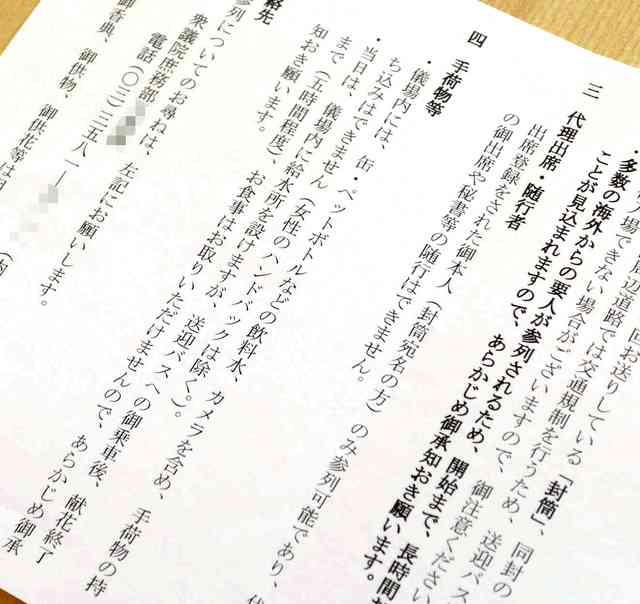 回お送りしている「封筒」、同封の
入場できない場合がございますので、御注意ください
周辺道路では交通規制を行うため、送迎バス
・多数の海外からの要人が参列されるため、開始まで、長時間お
ことが見込まれますので、あらかじめ御承知おき願います。
三　代理出席・随行者
出席登録をされた御本人（封筒宛名の方）のみ参列可能であり、代
の御出席や秘書等の随行はできません。
四　手荷物等
・儀場内には、缶・ペットボトルなどの飲料水、カメラを含め、手荷物の持
ち込みはできません（女性のハンドバックは除く。）。
・当日は、儀場内に給水所を設けますが、送迎バスへの御乗車後、献花終了
まで（五時間程度）、お食事はお取りいただけませんので、あらかじめ御承
知おき願います。
絡先
参列についてのお尋ねは、左記にお願いします。
衆議院庶務部
電話（〇三）三五八一―
御香典、御供物、御供花等は